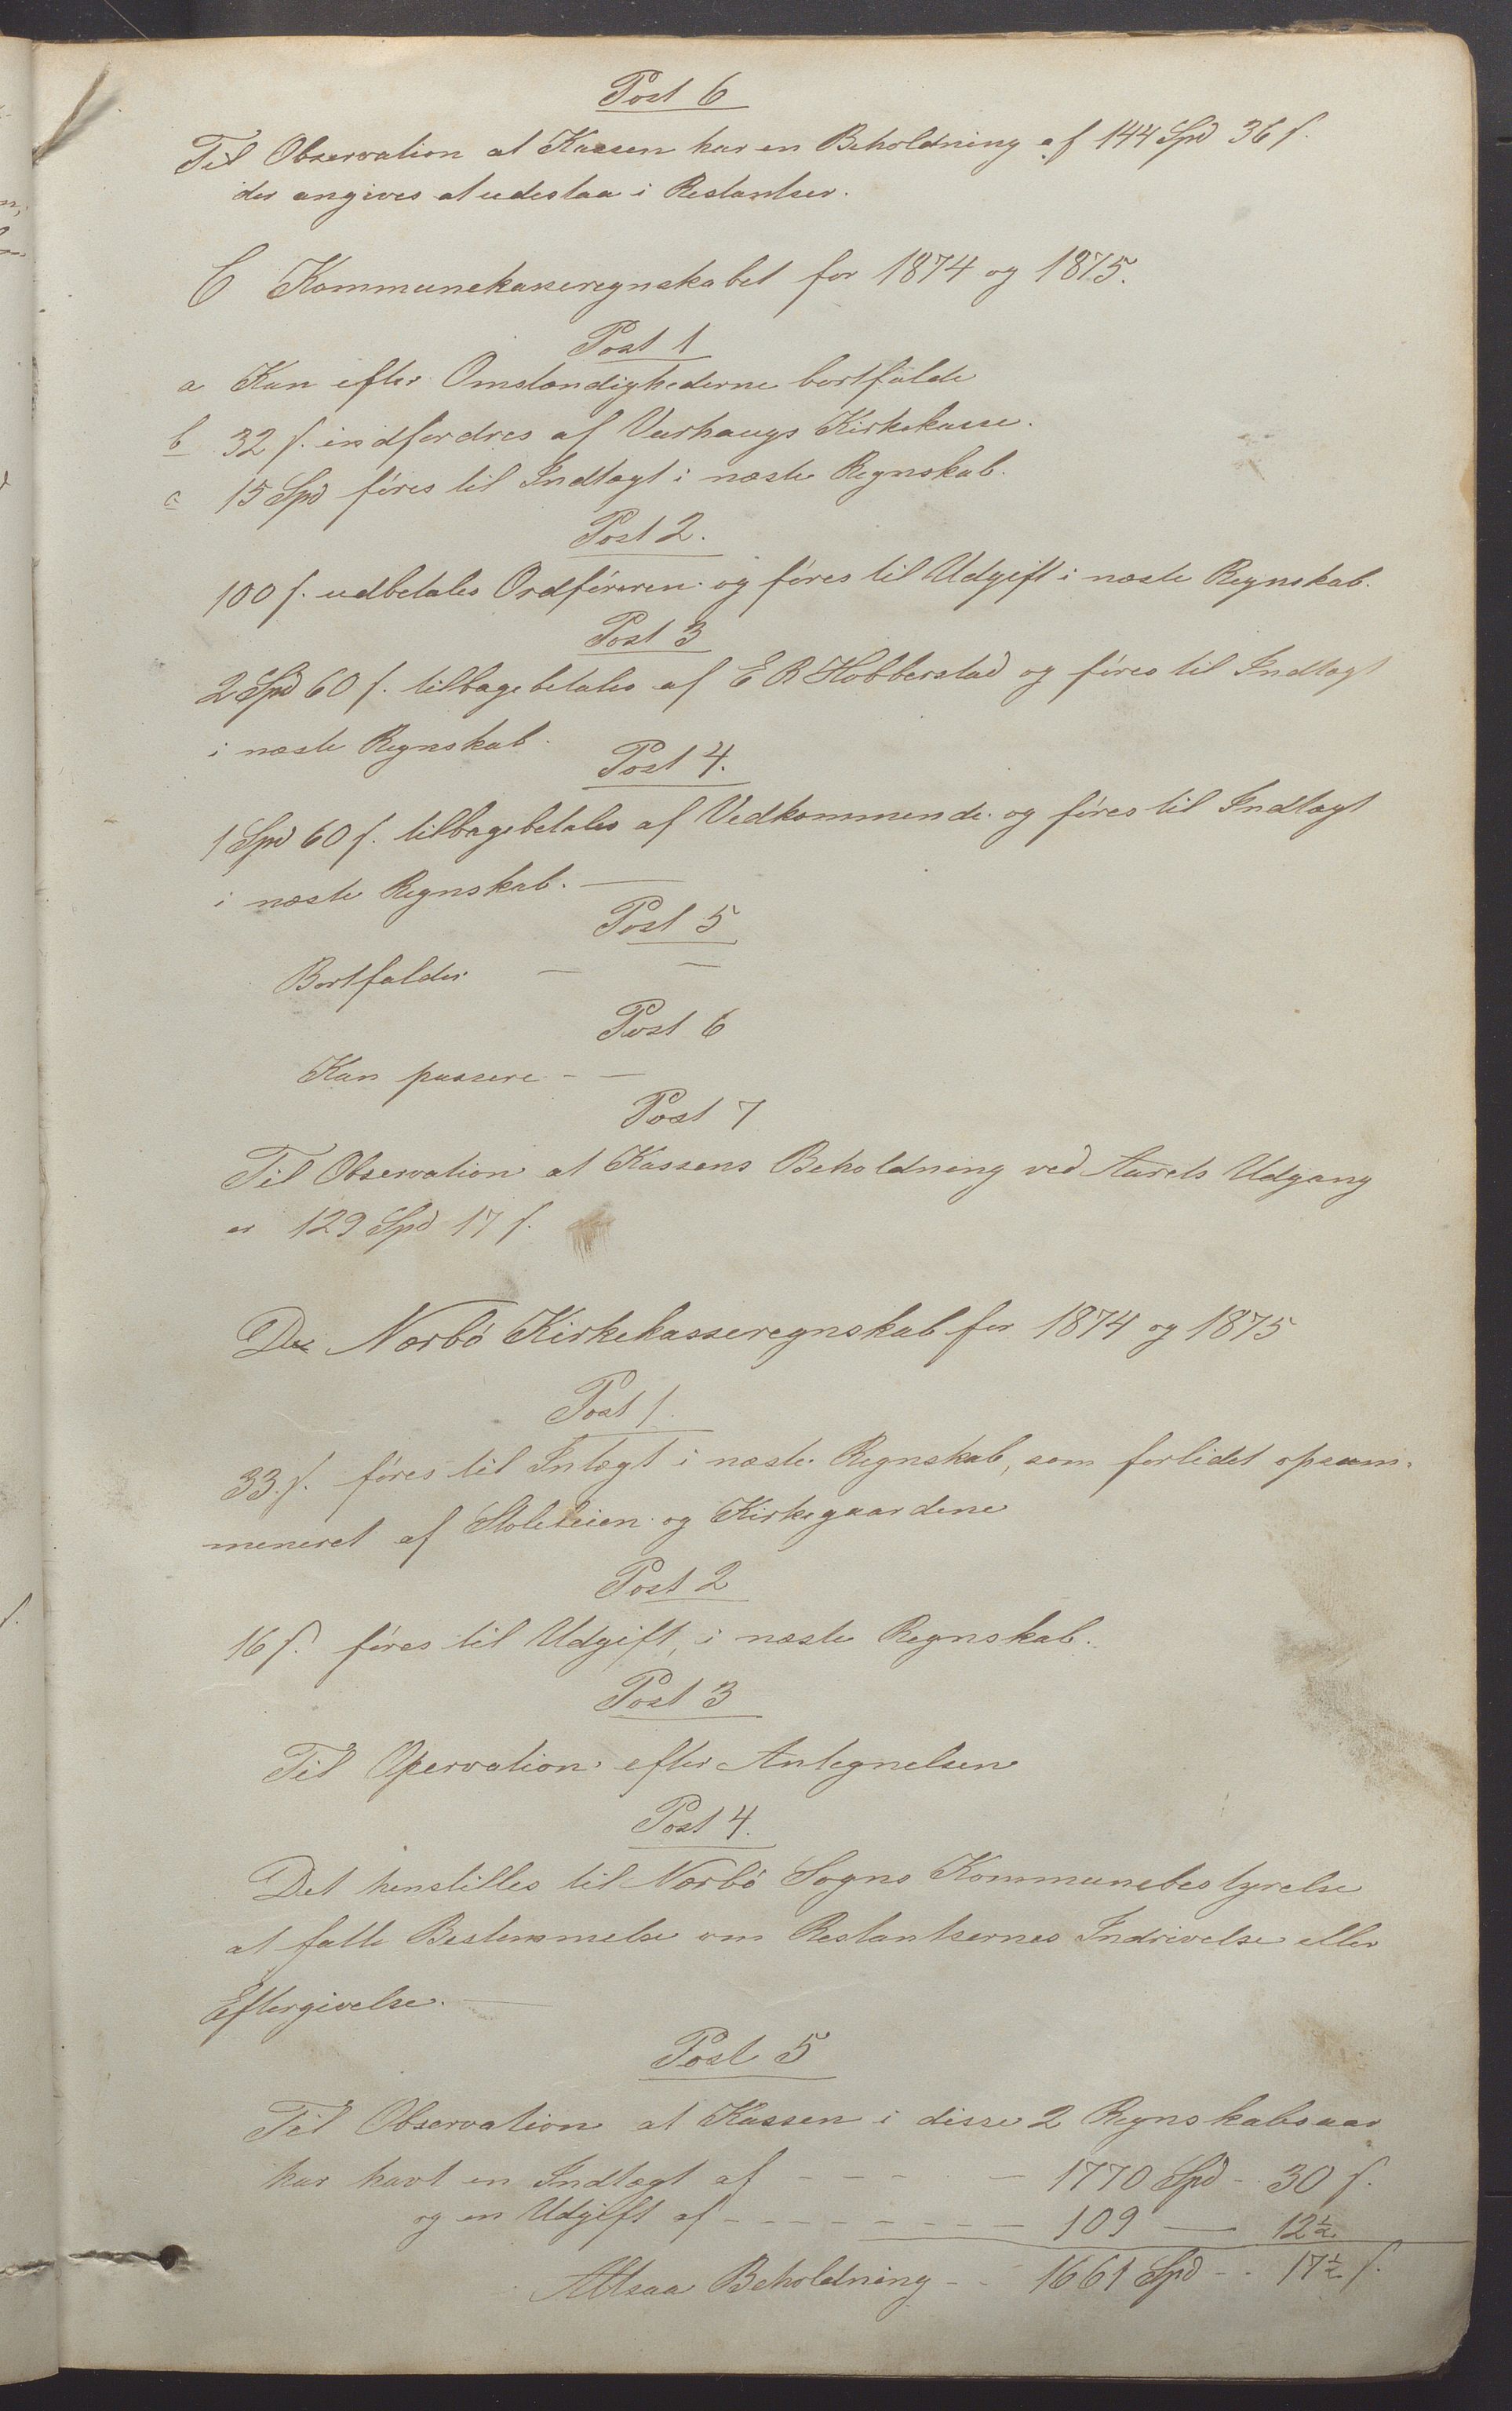 Post 6
Til Observation at Kassen har en Beholdning af 144 Spd 36 ſ.
der angives at udestaa i Restantser.
C Kommunekasseregnskabet for 1874 og 1875.
Post 1
a Kan efter Omstændighederne bortfalde
b 32 ſ. indfordres af Varhaugs Kirkekasse.
c 15 Spd føres til Indtægt i næste Regnskab.
Post 2.
100 ſ. udbetales Ordføreren og føres til Udgift i næste Regnskab.
Post 3
2 Spd 60 ſ. tilbagebetales af E R Hobberstad og føres til Indtægt
i næste Regnskab.
Post 4.
1 Spd 60 ſ. tilbagebetales af Vedkommende og føres til Indtægt
i næste Regnskab. —
Post 5
Bortfalder — —
Post 6
Kan passere - —
Post 7
Til Observation at Kassens Beholdning ved Aarets Udgang
er 129 Spd 17 ſ.
D Nærbø Kirkekasseregnskab for 1874 og 1875
Post 1.
33 ſ. føres til Intægt i næste Regnskab, som forlidet opsum-
meneret af Stoleleien og Kirkegaardene
Post 2
16 ſ. føres til Udgift, i næste Regnskab.
Post 3
Til Opervation efter Antegnelsen
Post 4.
Det henstilles til Nærbø Sogns Kommunebestyrelse
at fatte Bestemmelse om Restantsernes Indrivelse eller
Eftergivelse. —
Post 5
Til Observation at Kassen i disse 2 Regnskabsaar
har havt en Indtægt af - - - - 1770 Spd - 30 ſ.
og en Udgift af - - - - - - - - 109 — 12½
Altsaa Beholdning - - 1661 Spd - - 17½ ſ.